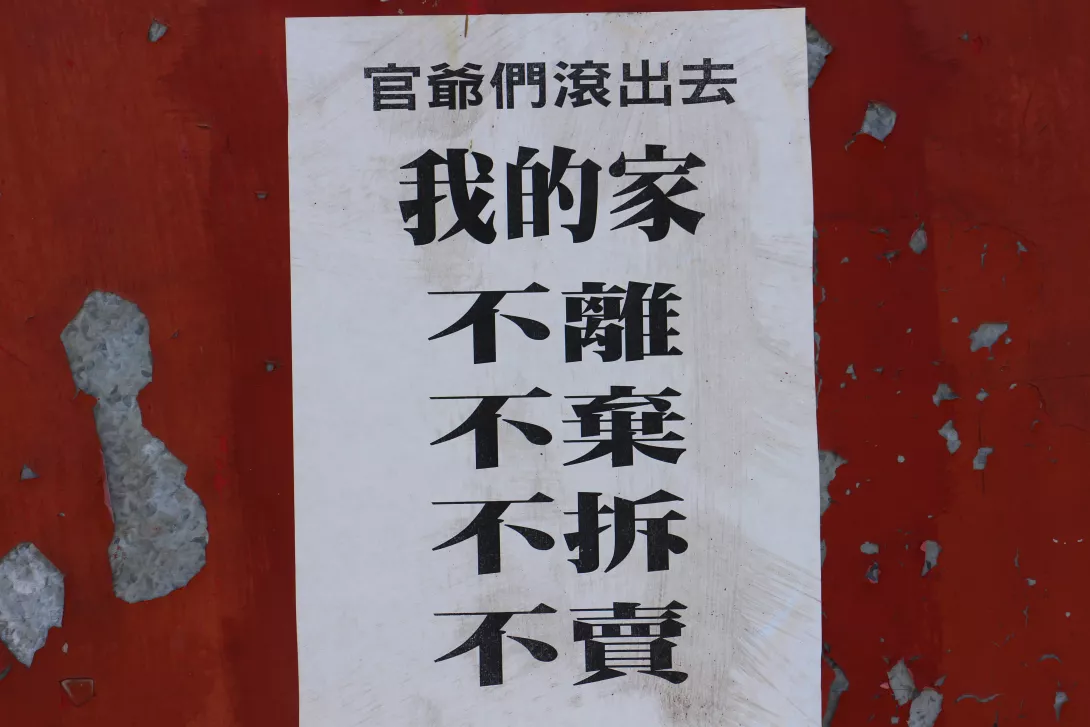 官爺們滾出去
我的家
不離
不棄
不拆
不賣